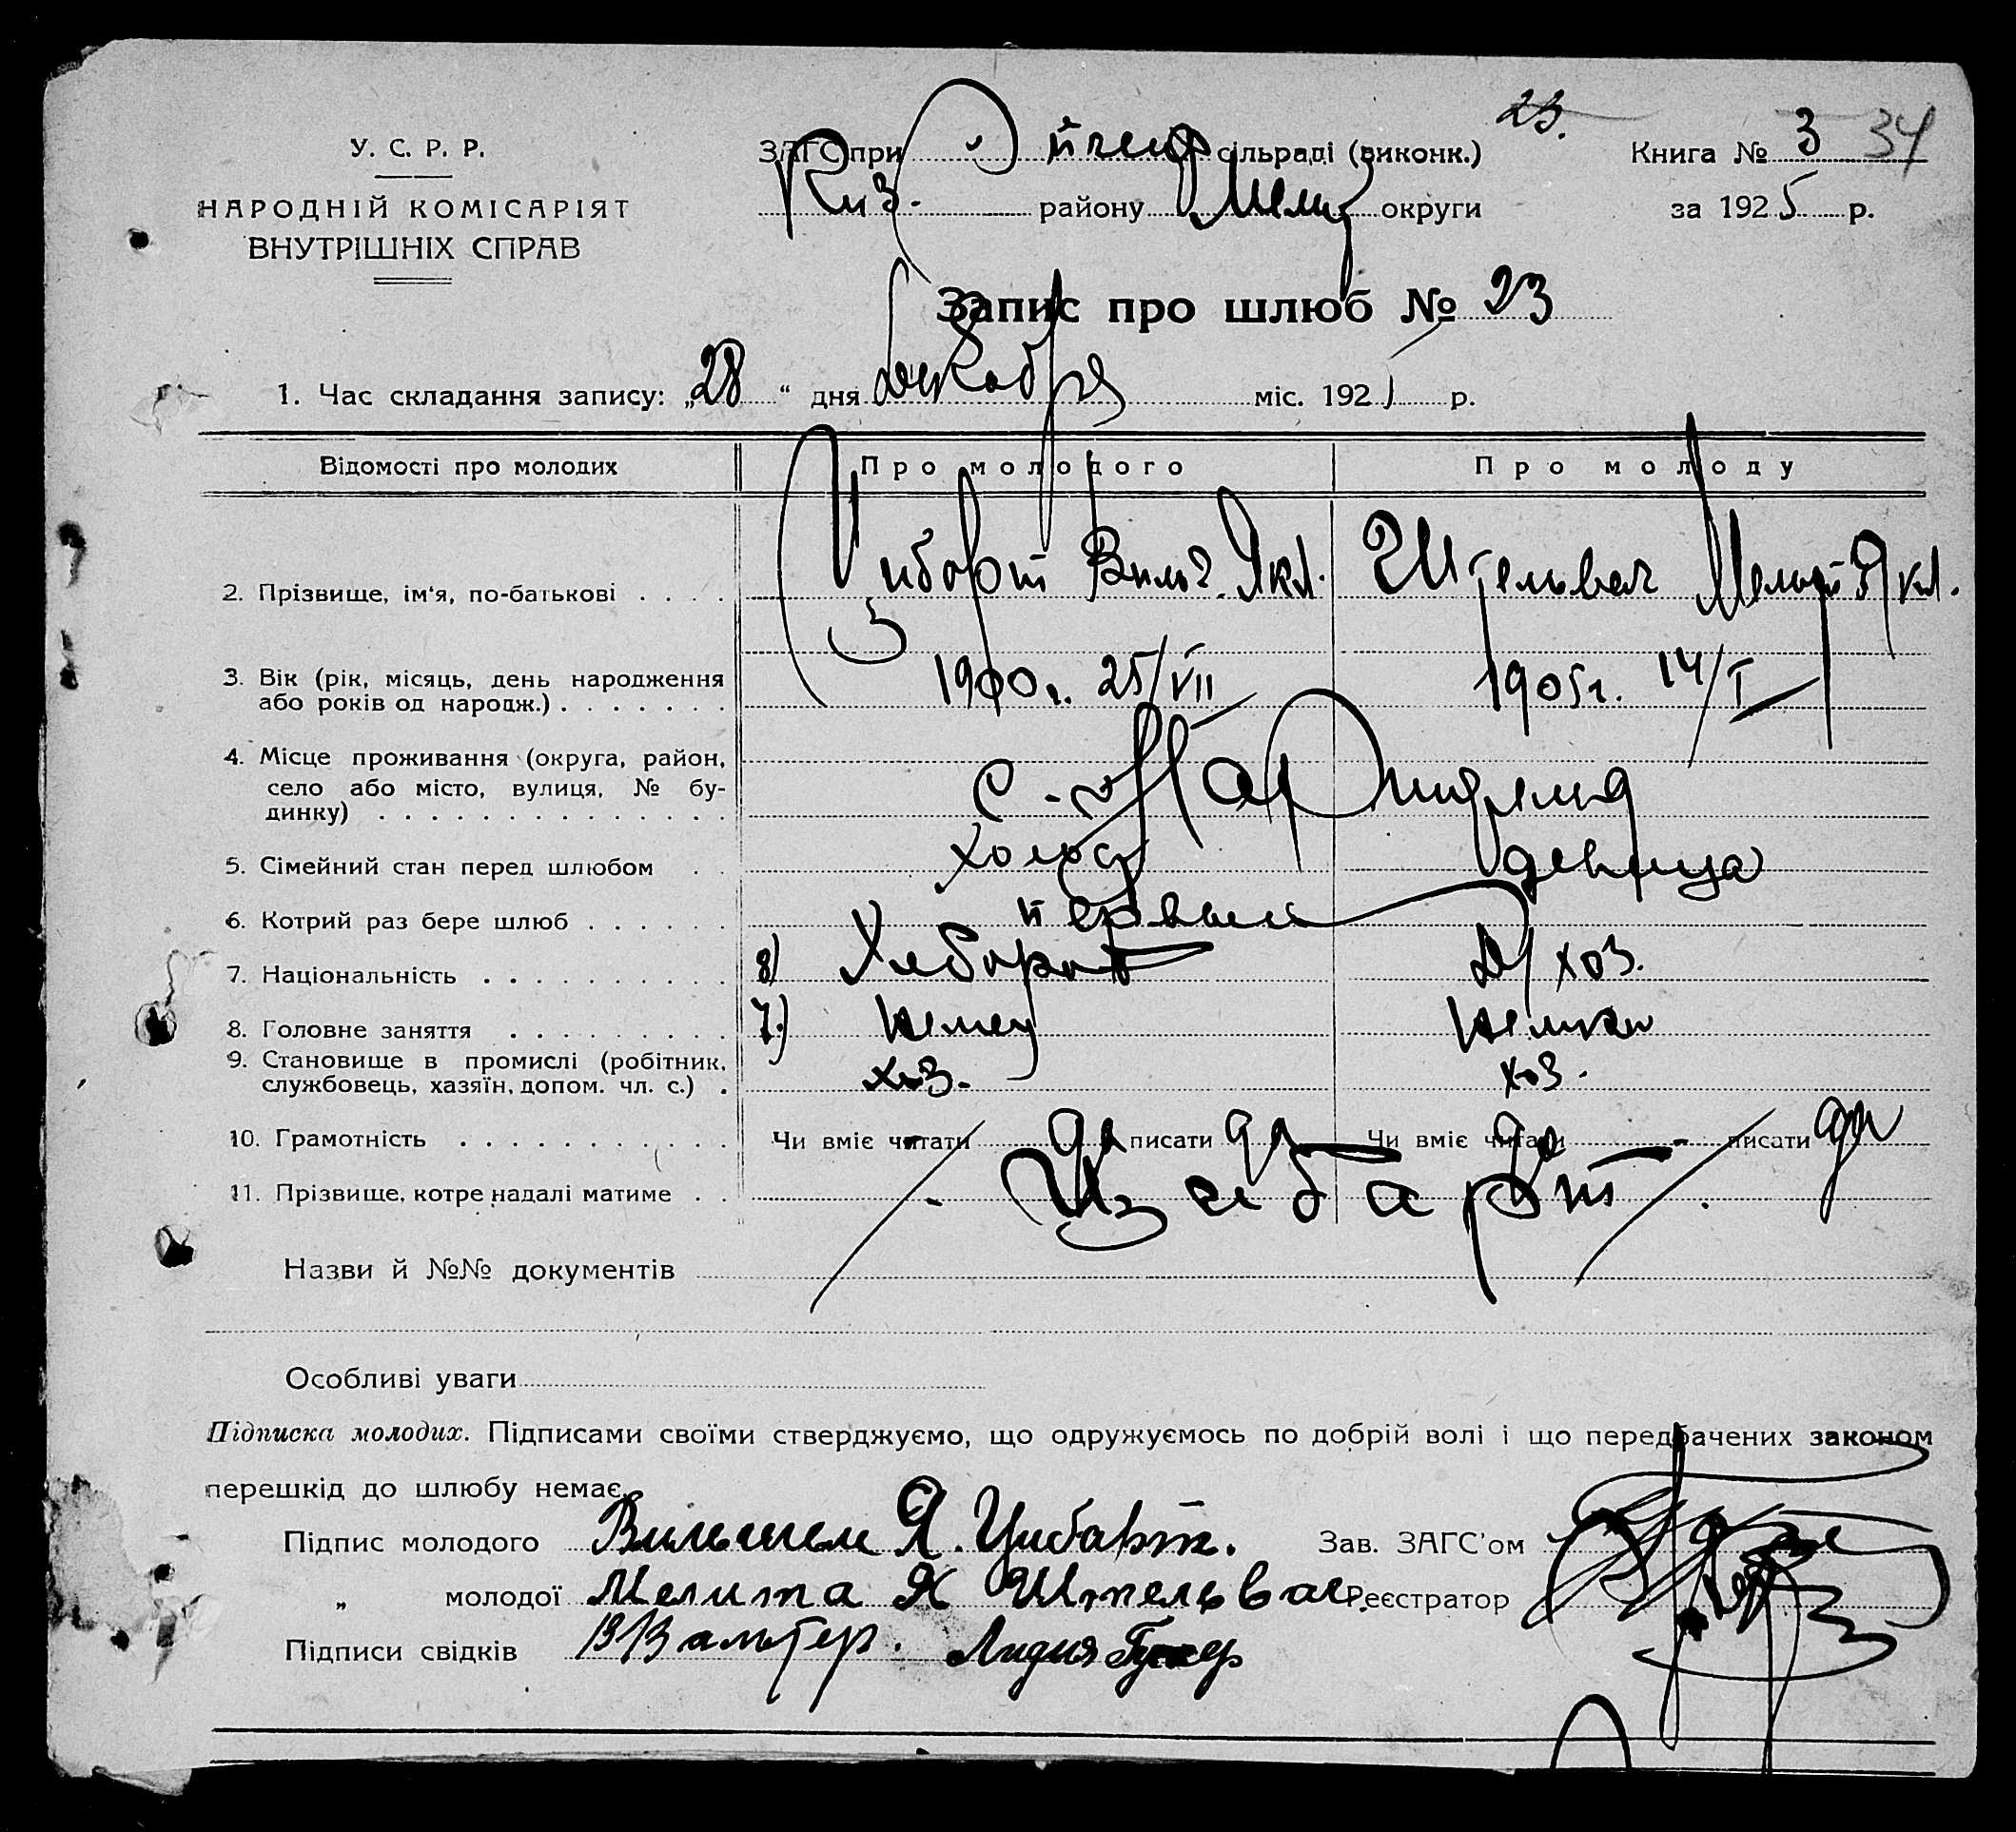 23.
У. С. Р. Р.
НАРОДНІЙ КОМІСАРІЯТ
ВНУТРІШНІХ СПРАВ
ЗАГС при сільраді (виконк.)
району Мели округи
Книга № 3 34
за 1925 р.
Запис про шлюб № 23
1. Час складання запису: „28 “ дня Декабря міс. 192 р.
Відомості про молодих Про молодого Про молоду
2. Прізвище, ім'я, по-батькові . . . . Цибарт Вильг. Якл. Штельвал Якл.
3. Вік (рік, місяць, день народження
або років од народж.) . . . . . . . 1900 г. 25/VII 1905 г. 14/I
4. Місце проживання (округа, район,
село або місто, вулиця, № бу-
динку) . . . . . . . . . . . . . . с.
5. Сімейний стан перед шлюбом . . холост девица
6. Котрий раз бере шлюб . . . . . . первый
7. Національність . . . . . . . . . . 8) Хлебороб Д/хоз.
8. Головне заняття . . . . . . . . . 7.) Немец Немка
9. Становище в промислі (робітник,
службовець, хазяїн, допом. чл. с.) . хоз. хоз.
10. Грамотність . . . . . . . . . . . Чи вміє читати да писати да Чи вміє читати да писати да
11. Прізвище, котре надалі матиме . . Цибарт
Назви й №№ документів
Особливі уваги
Підписка молодих. Підписами своїми стверджуємо, що одружуємось по добрій волі і що передбачених законом
перешкід до шлюбу немає.
Підпис молодого Вильгелм Я. Цибарт. Зав. ЗАГС'ом
„ молодої Мелита Я Штельвал. Реєстратор
Підписи свідків Вальтер. Лидия